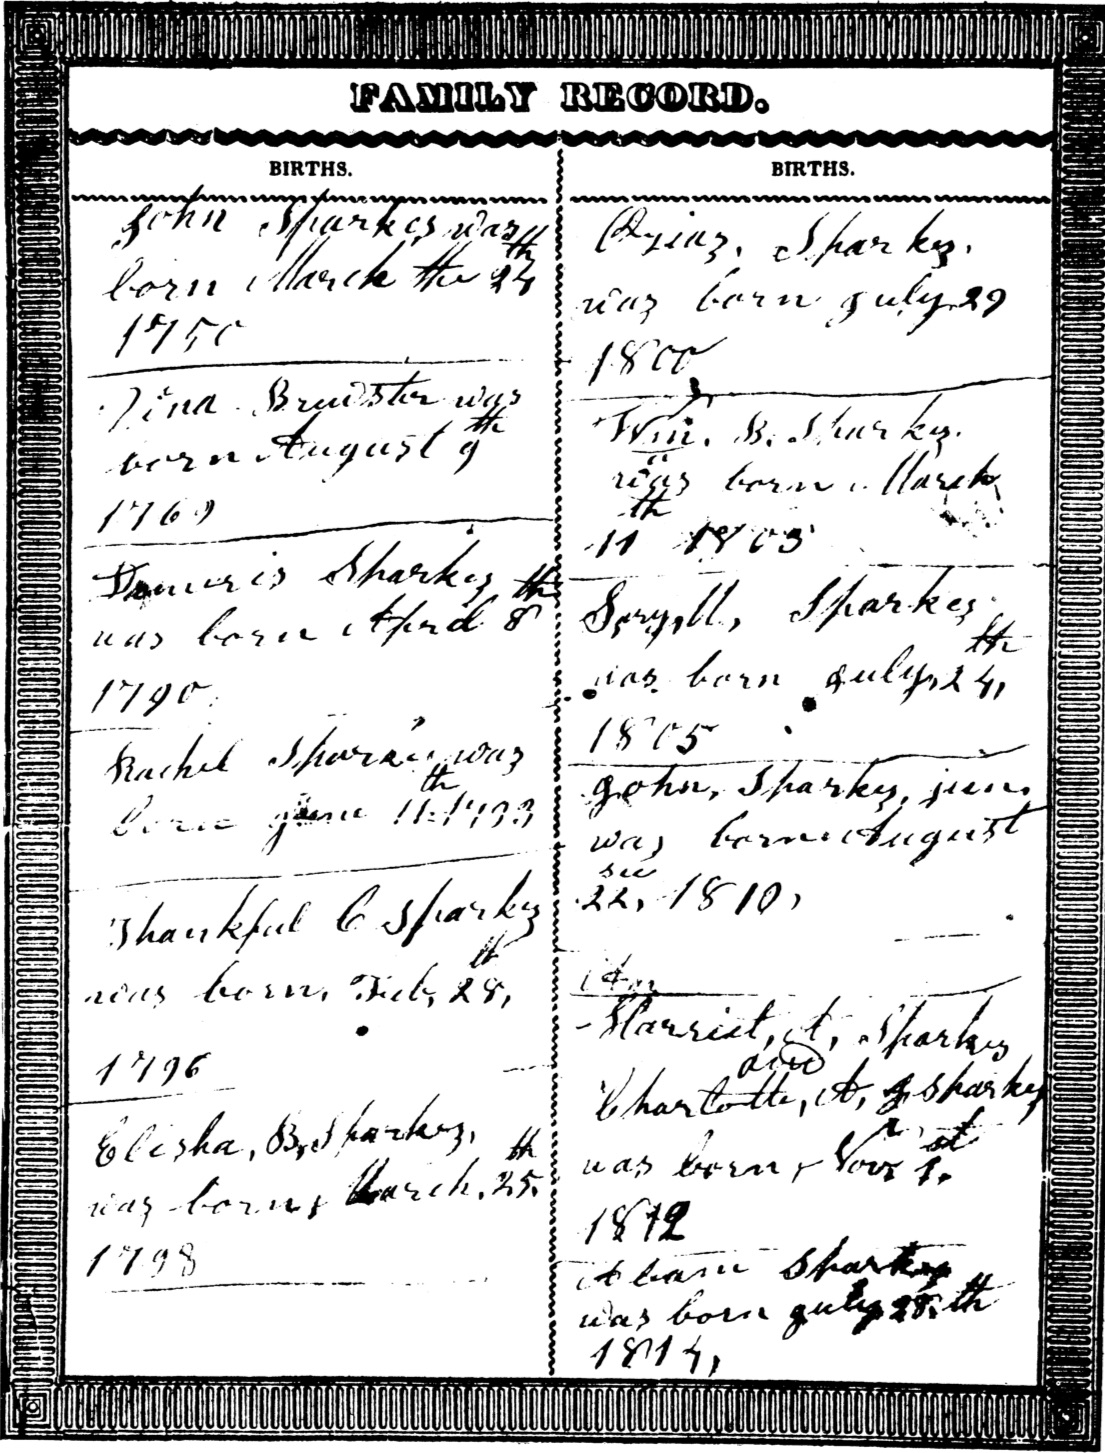 FAMILY RECORD.
BIRTHS.
John Sparkes was
born March the 24th
1750
Zina Brewster was
born August 9th
1769
Dameris Sparkes
was born April 8th
1790.
Rachel Sparks was
born June 11th 1793
Thankful C Sparkes
was born, Feb, 28th,
1796
Elisha, B, Sparkes,
was born, March, 25th.
1798
BIRTHS.
Ozias, Sparkes.
was born July 29
1800
Wm. B. Sparkes.
was born March
11th 1803
Sparkes
was born July, 24th,
1805
John, Sparkes, jun.
was born August
22, 1810,
Harriet, A, Sparkes
and
Charlotte, A, Sparkes
was born, Nov. 1st.
1812
Sparkes
was born July 28th
1814,